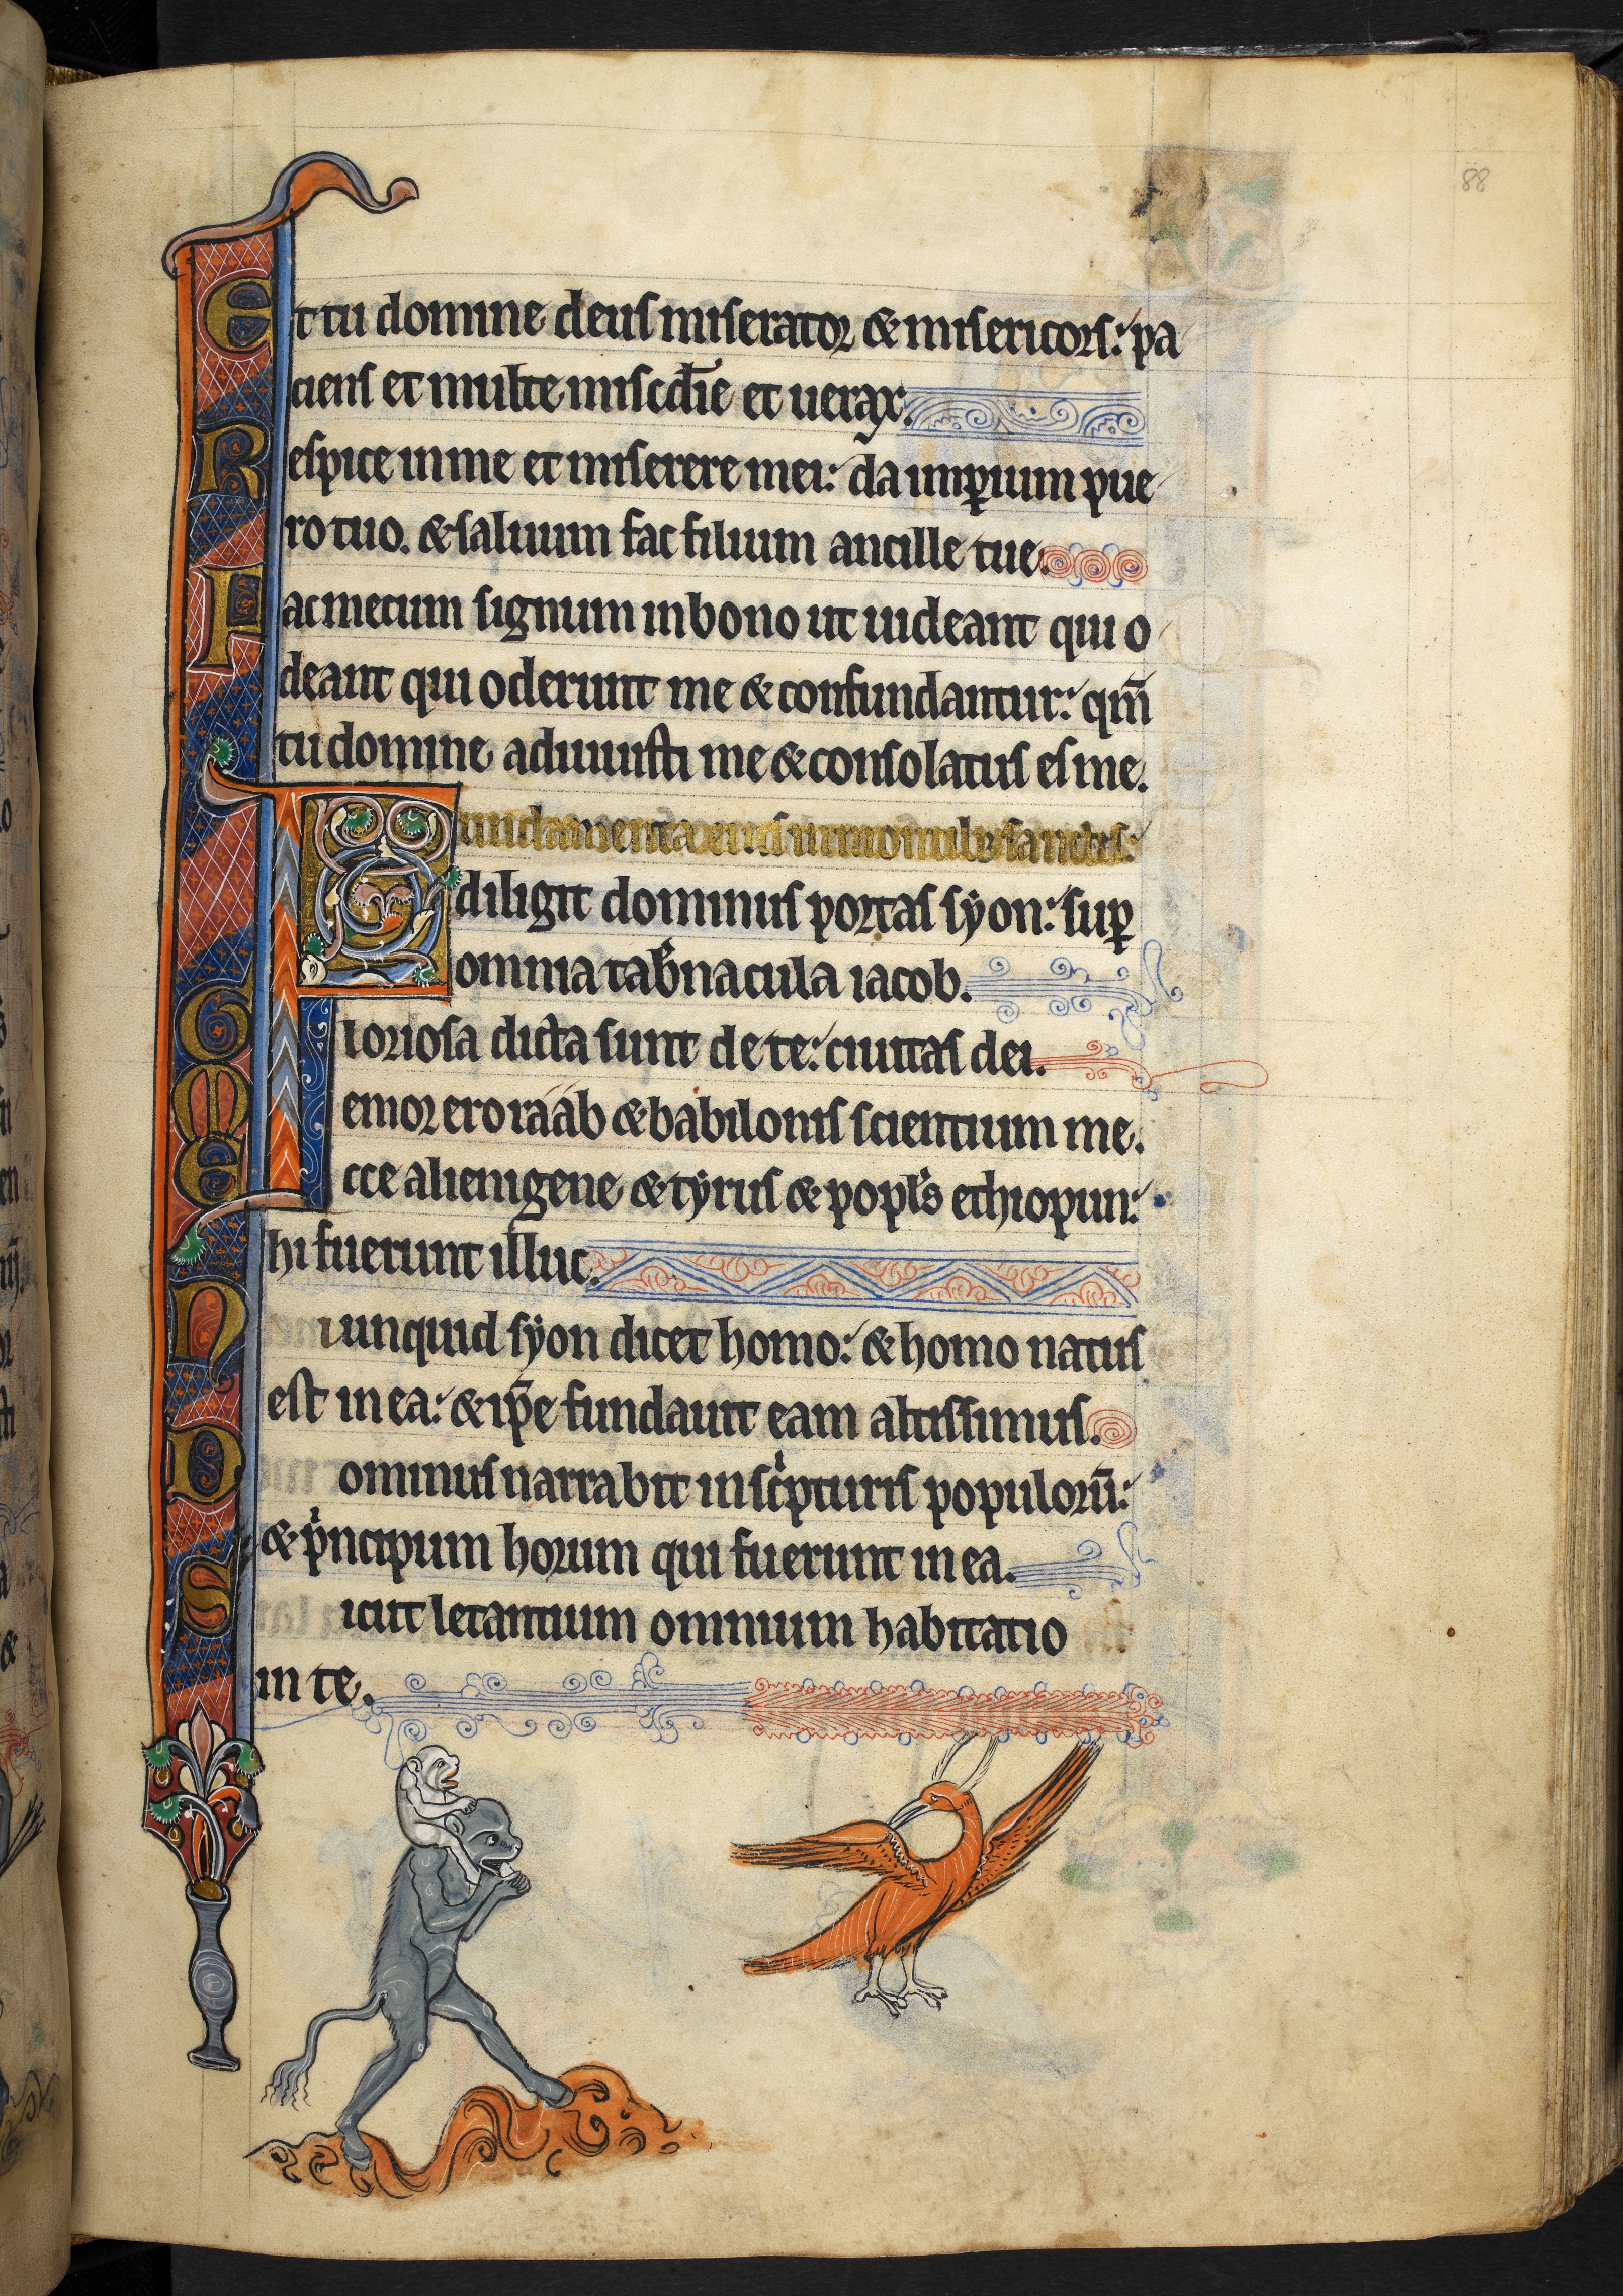 88
Et tu domine deus miserator & misericors: pa
ciens et multe misc̄die et uerax.
Respice in me et miserere mei: da imꝑium pue
ro tuo. & saluum fac filium ancille tue.
Fac mecum signum in bono ut uideant qui o
deant qui oderunt me & confundantur: qm̄
tu domine adiuuisti me & consolatus es me.
Fundamenta eius in montib; sanctis:
diligit dominus portas sẏon: suꝑ
omnia tab̾nacula iacob.
Gloriosa dicta sunt de te: ciuitas dei.
Memor ero raab & babilonis scientium me.
Ecce alienigene & tẏrus & popl̾s ethiopun:
hi fuerunt illuc.
Nunquid sẏon dicet homo: & homo natus
est in ea: & ip̄e fundauit eam altissimus.
Dominus narrabit in scͥpturis populorū:
& pͥncipum horum qui fuerunt in ea.
Sicut letantium omnium habitatio
in te.